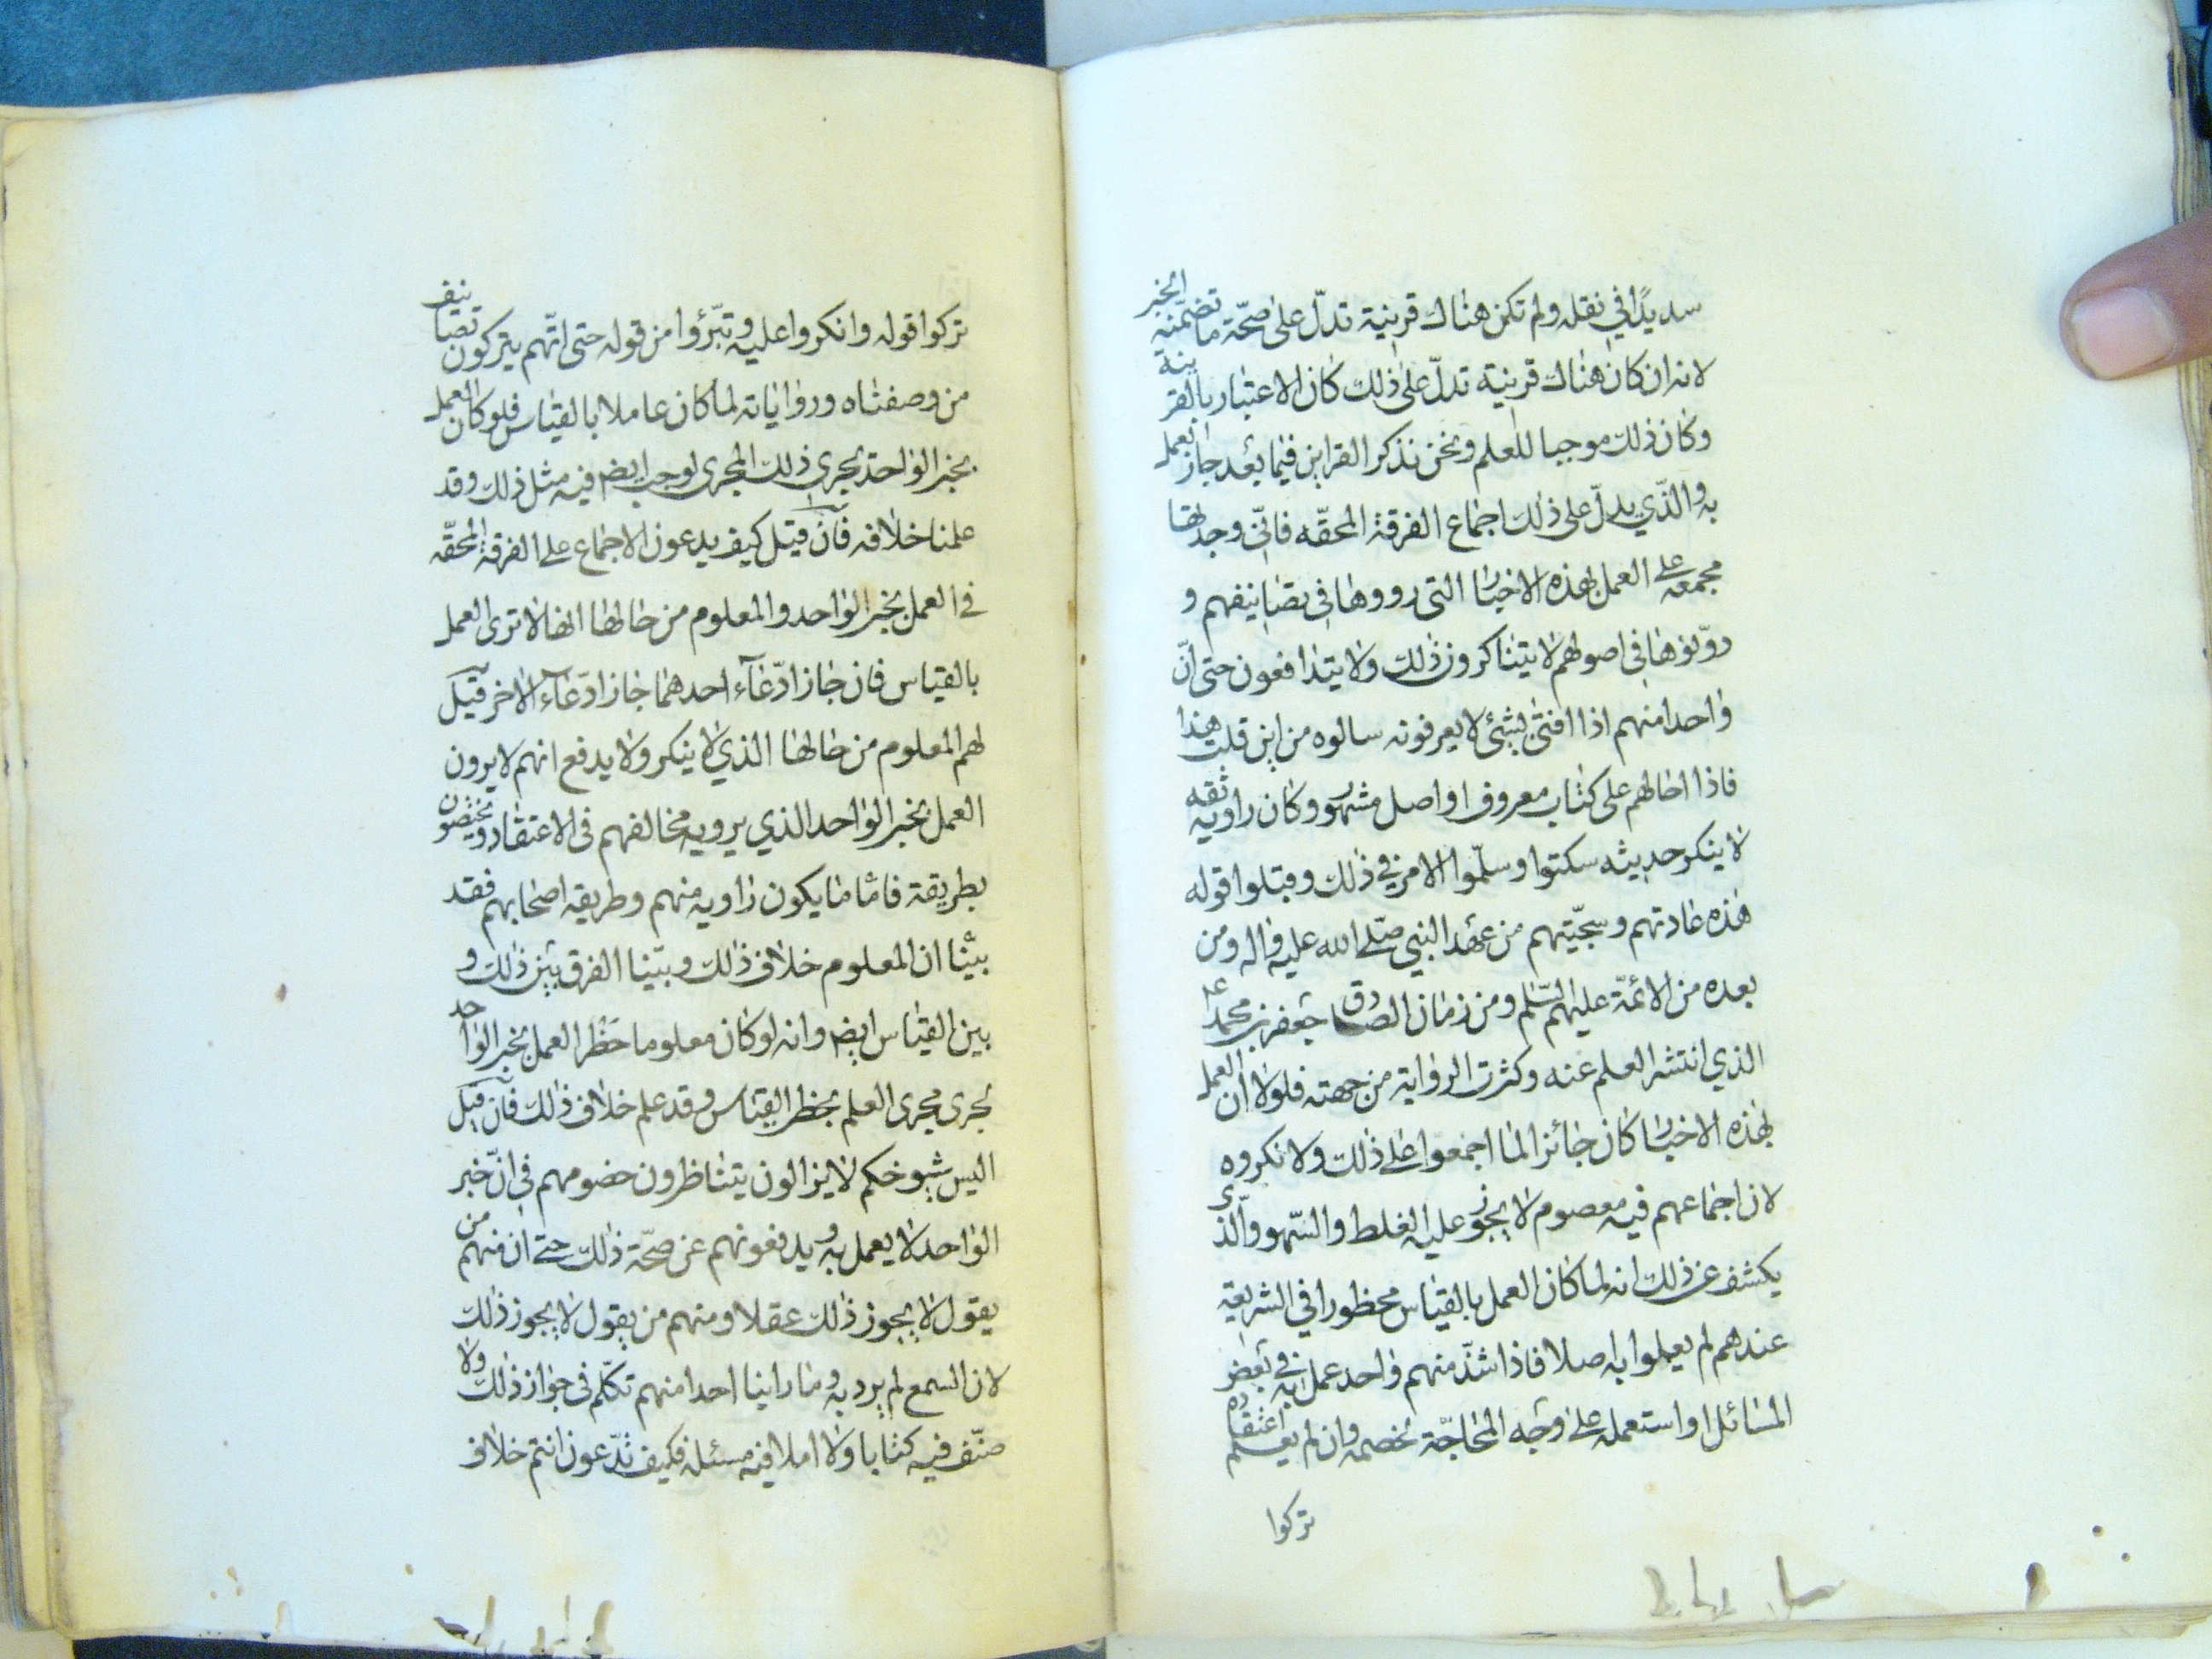 سديدًا في نقله ولم تكن هناك قرينة تدلّ على صحّة ما تضمّنه الخبر
لانه ان كان هناك قرينة تدلّ على ذلك كان الاعتبار بالقرينة
وكان ذلك موجبا للعلم ونحن نذكر القراين فيما بعد جاز العمل
به والذّي يدلّ على ذلك اجماع الفرقة المحقّه فانّي وجدتها
مجمعه على العمل بهذه الاخبار التى رووها في تصانيفهم و
دوّنوها في اصولهم لا يتناكرون ذلك ولا يتدافعون حتى انّ
واحدا منهم اذا افتى بشئ لا يعرفونه سالوه من اين قلت هذا
فاذا احالهم على كتاب معروف او اصل مشهور وكان راويه ثقه
لا ينكر حديثه سكتوا وسلّموا الامر في ذلك وقبلوا قوله
هذه عادتهم وسجّيتهم من عهد النبي صلى الله عليه واله ومن
بعده من الائمّة عليهم السّلم ومن زمان الصادق جعفر بن محمد ع
الذي انتشر العلم عنه وكثرت الرواية من جهته فلولا ان العمل
بهذه الاخبار كان جائزا لما اجمعوا على ذلك ولانكروه
لان اجماعهم فيه معصوم لا يجوز عليه الغلط والسّهو والّذى
يكشف عن ذلك انه لما كان العمل بالقياس محظورا في الشريعة
عندهم لم يعملوا به اصلا فاذا شذّ منهم واحد عمل به في بعض
المسائل او استعمله على وجه المحاجّة لخصمه وان لم يعلم اعتقاده
تركوا
تركوا قوله وانكروا عليه وتبّرؤا من قوله حتى انّهم يتركون تصانيف
من وصفناه ورواياته لما كان عاملا بالقياس فلو كان العمل
بخبر الواحد يجرى ذلك المجرى لوجب ايضا فيه مثل ذلك وقد
علمنا خلافه فان قيل كيف يدعون الاجماع على الفرقة المحقّه
في العمل بخبر الواحد والمعلوم من حالها انها لا ترى العمل
بالقياس فان جاز ادّعآء احدهما جاز ادّعآء الاخر قيل
لهم المعلوم من حالها الذي لا ينكر ولا يدفع انهم لا يرون
العمل بخبر الواحد الذي يرويه مخالفهم في الاعتقاد ويختصون
بطريقة فامّا ما يكون راويه منهم وطريقه اصحابهم فقد
بيّنا ان المعلوم خلاف ذلك وبيّنا الفرق بين ذلك و
بين القياس ايضا وانه لو كان معلوما حَظْر العمل بخبر الواحد
لجرى مجرى العلم بحظر القياس وقد علم خلاف ذلك فان قيل
اليس شيوخكم لا يزالون يتناظرون خصومهم في انّ خبر
الواحد لا يعمل به ويدفعونهم عن صحّة ذلك حتى ان منهم من
يقول لا يجوز ذلك عقلا ومنهم من يقول لا يجوز ذلك
لان السمع لم يرد به وما راينا احدا منهم تكلّم في جواز ذلك ولا
صنّف فيه كتابا ولا املا فيه مسئلة فكيف تدّعون انتم خلاف